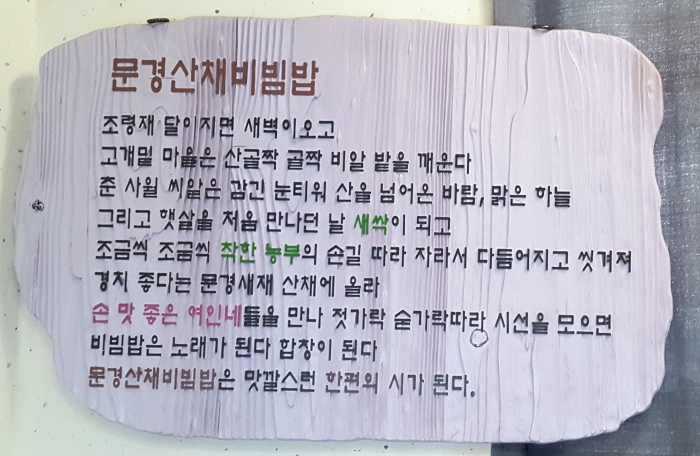 문경산채비빔밥
조령재 달이지면 새벽이오고
고개밑 마을은 산골짝 골짝 비알 밭을 깨운다
춘 사월 씨앗은 감긴 눈티워 산을 넘어온 바람, 맑은 하늘
그리고 햇살을 처음 만나던 날 새싹이 되고
조금씩 조금씩 착한 농부의 손길 따라 자라서 다듬어지고 씻겨져
경치 좋다는 문경새재 산채에 올라
손 맛 좋은 여인네들을 만나 젓가락 숟가락따라 시선을 모으면
비빔밥은 노래가 된다 합창이 된다
문경산채비빔밥은 맛깔스런 한편의 시가 된다.